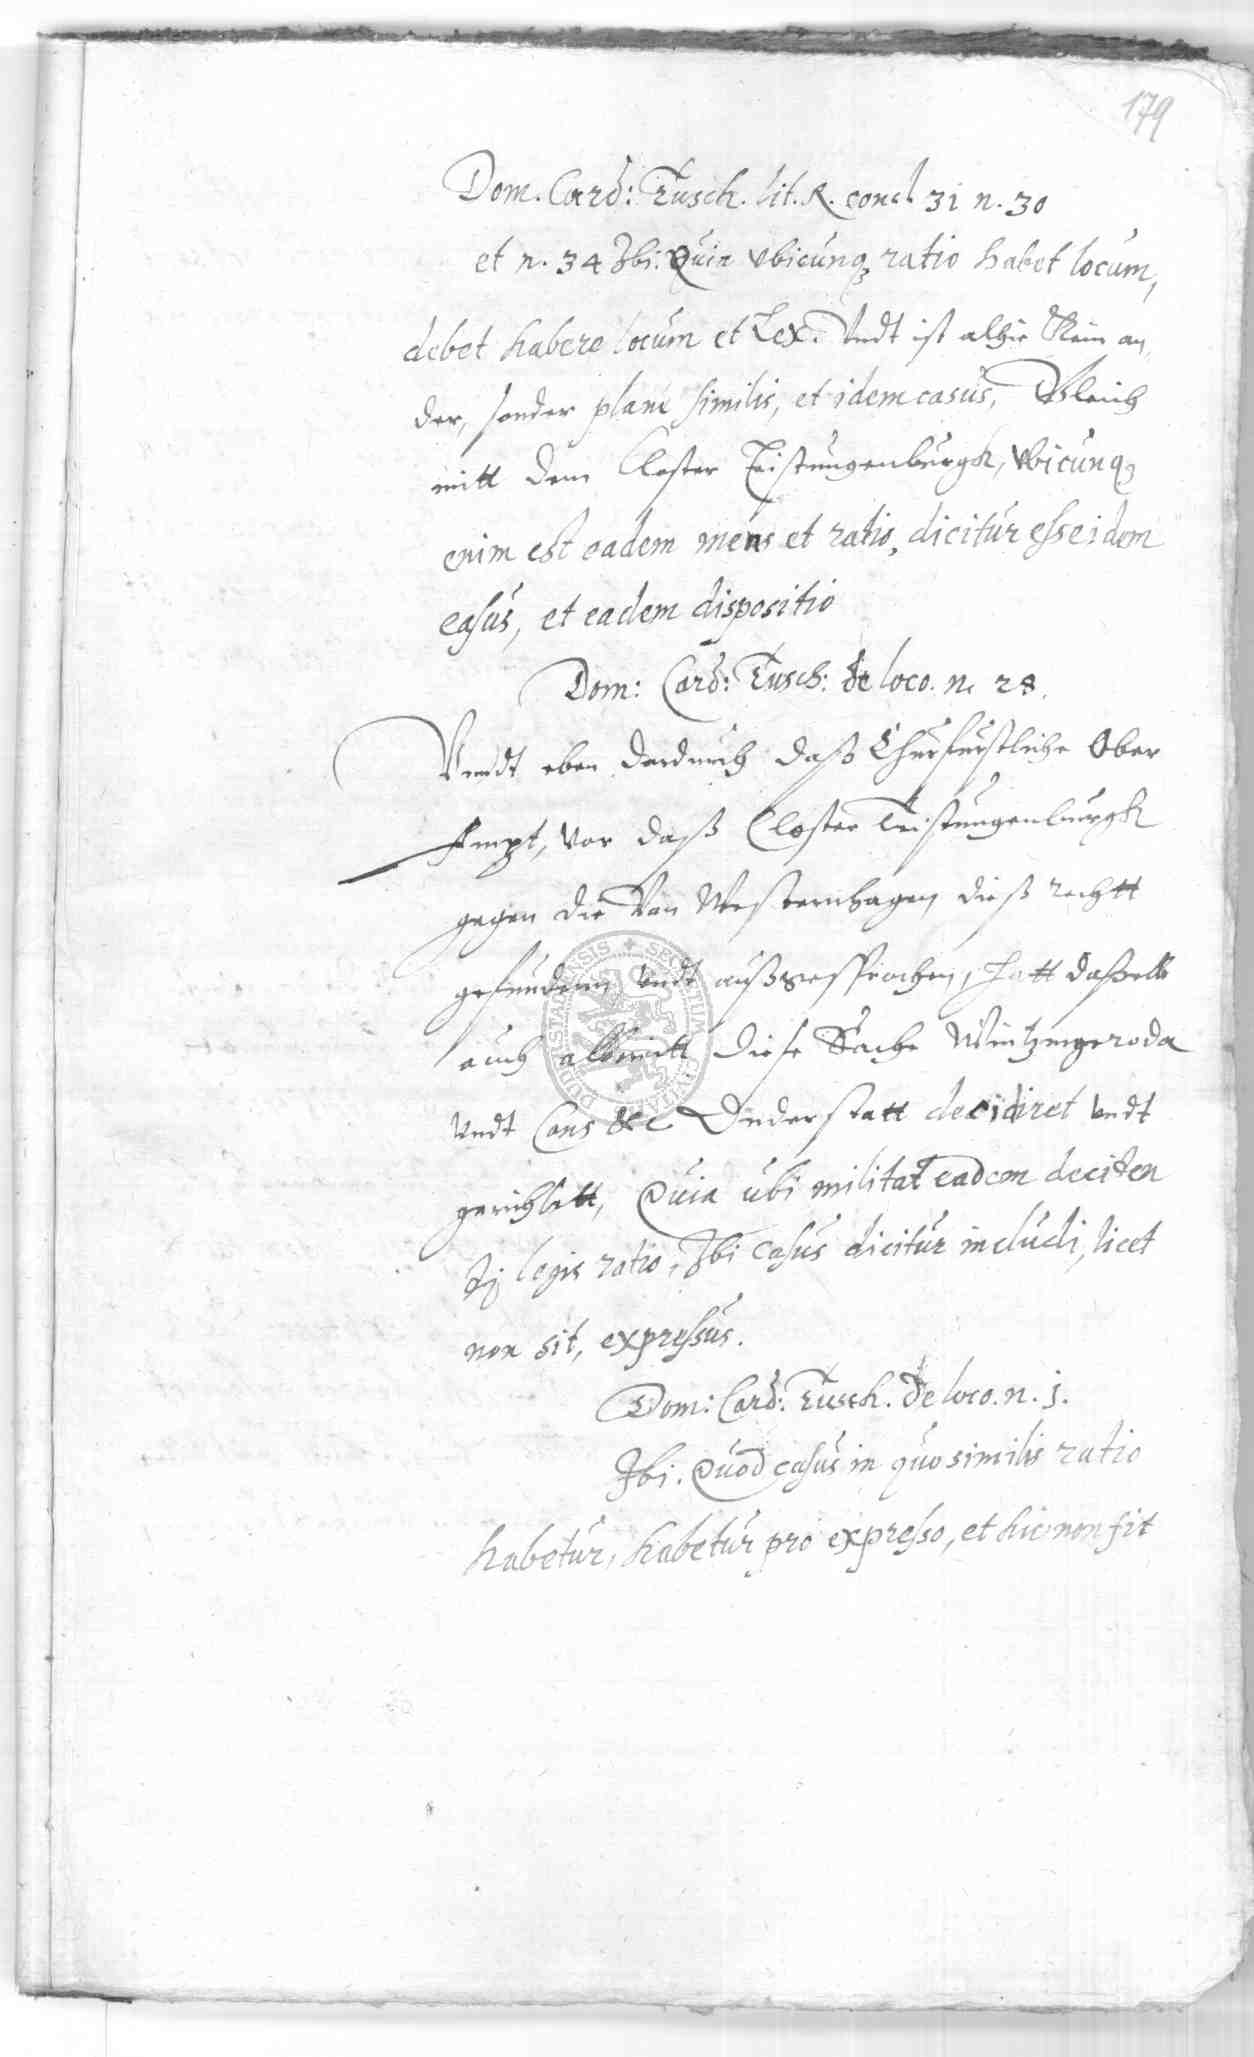 179
Dom. Card: Tusch. lit. R. concl 31 n. 30
et n. 34 Ibi. Quia vbicunq, ratio habet locum,
debet habere locum et Lex. Vndt ist alhie Kein an,
der, sonder plane similis, et idem casus, Gleich
mitt dem Closter Teistungenburgk, Vbicunq
enim est eadem mens et ratio, dicitur esse idem
casus, et eadem dispositio
Dom: Card: Tusch: de loco. n. 28.
Vnndt eben dardurch daß Churfurstliche Ober
Ampt, vor daß Closter Teistungenburgk
gegen die Von Westernhagen dieß rechtt
gefundenn vndt außgesprochen, hatt daßelb
auch diese Sache Wintzingeroda
vndt Cons &c Duderstatt decidiret vndt
gerichtett, Quia ubi militat eadem deciden
dj legis ratio, Ibi casus dicitur includi, licet
non sit, expressus.
Dom: Card: Tusch. de loco. n. j.
Ibi. Quod casus in quo similis ratio
habetur, habetur pro expresso, et hic non fit
DUDERSTADENSIS SECRETUM CIVITATIS